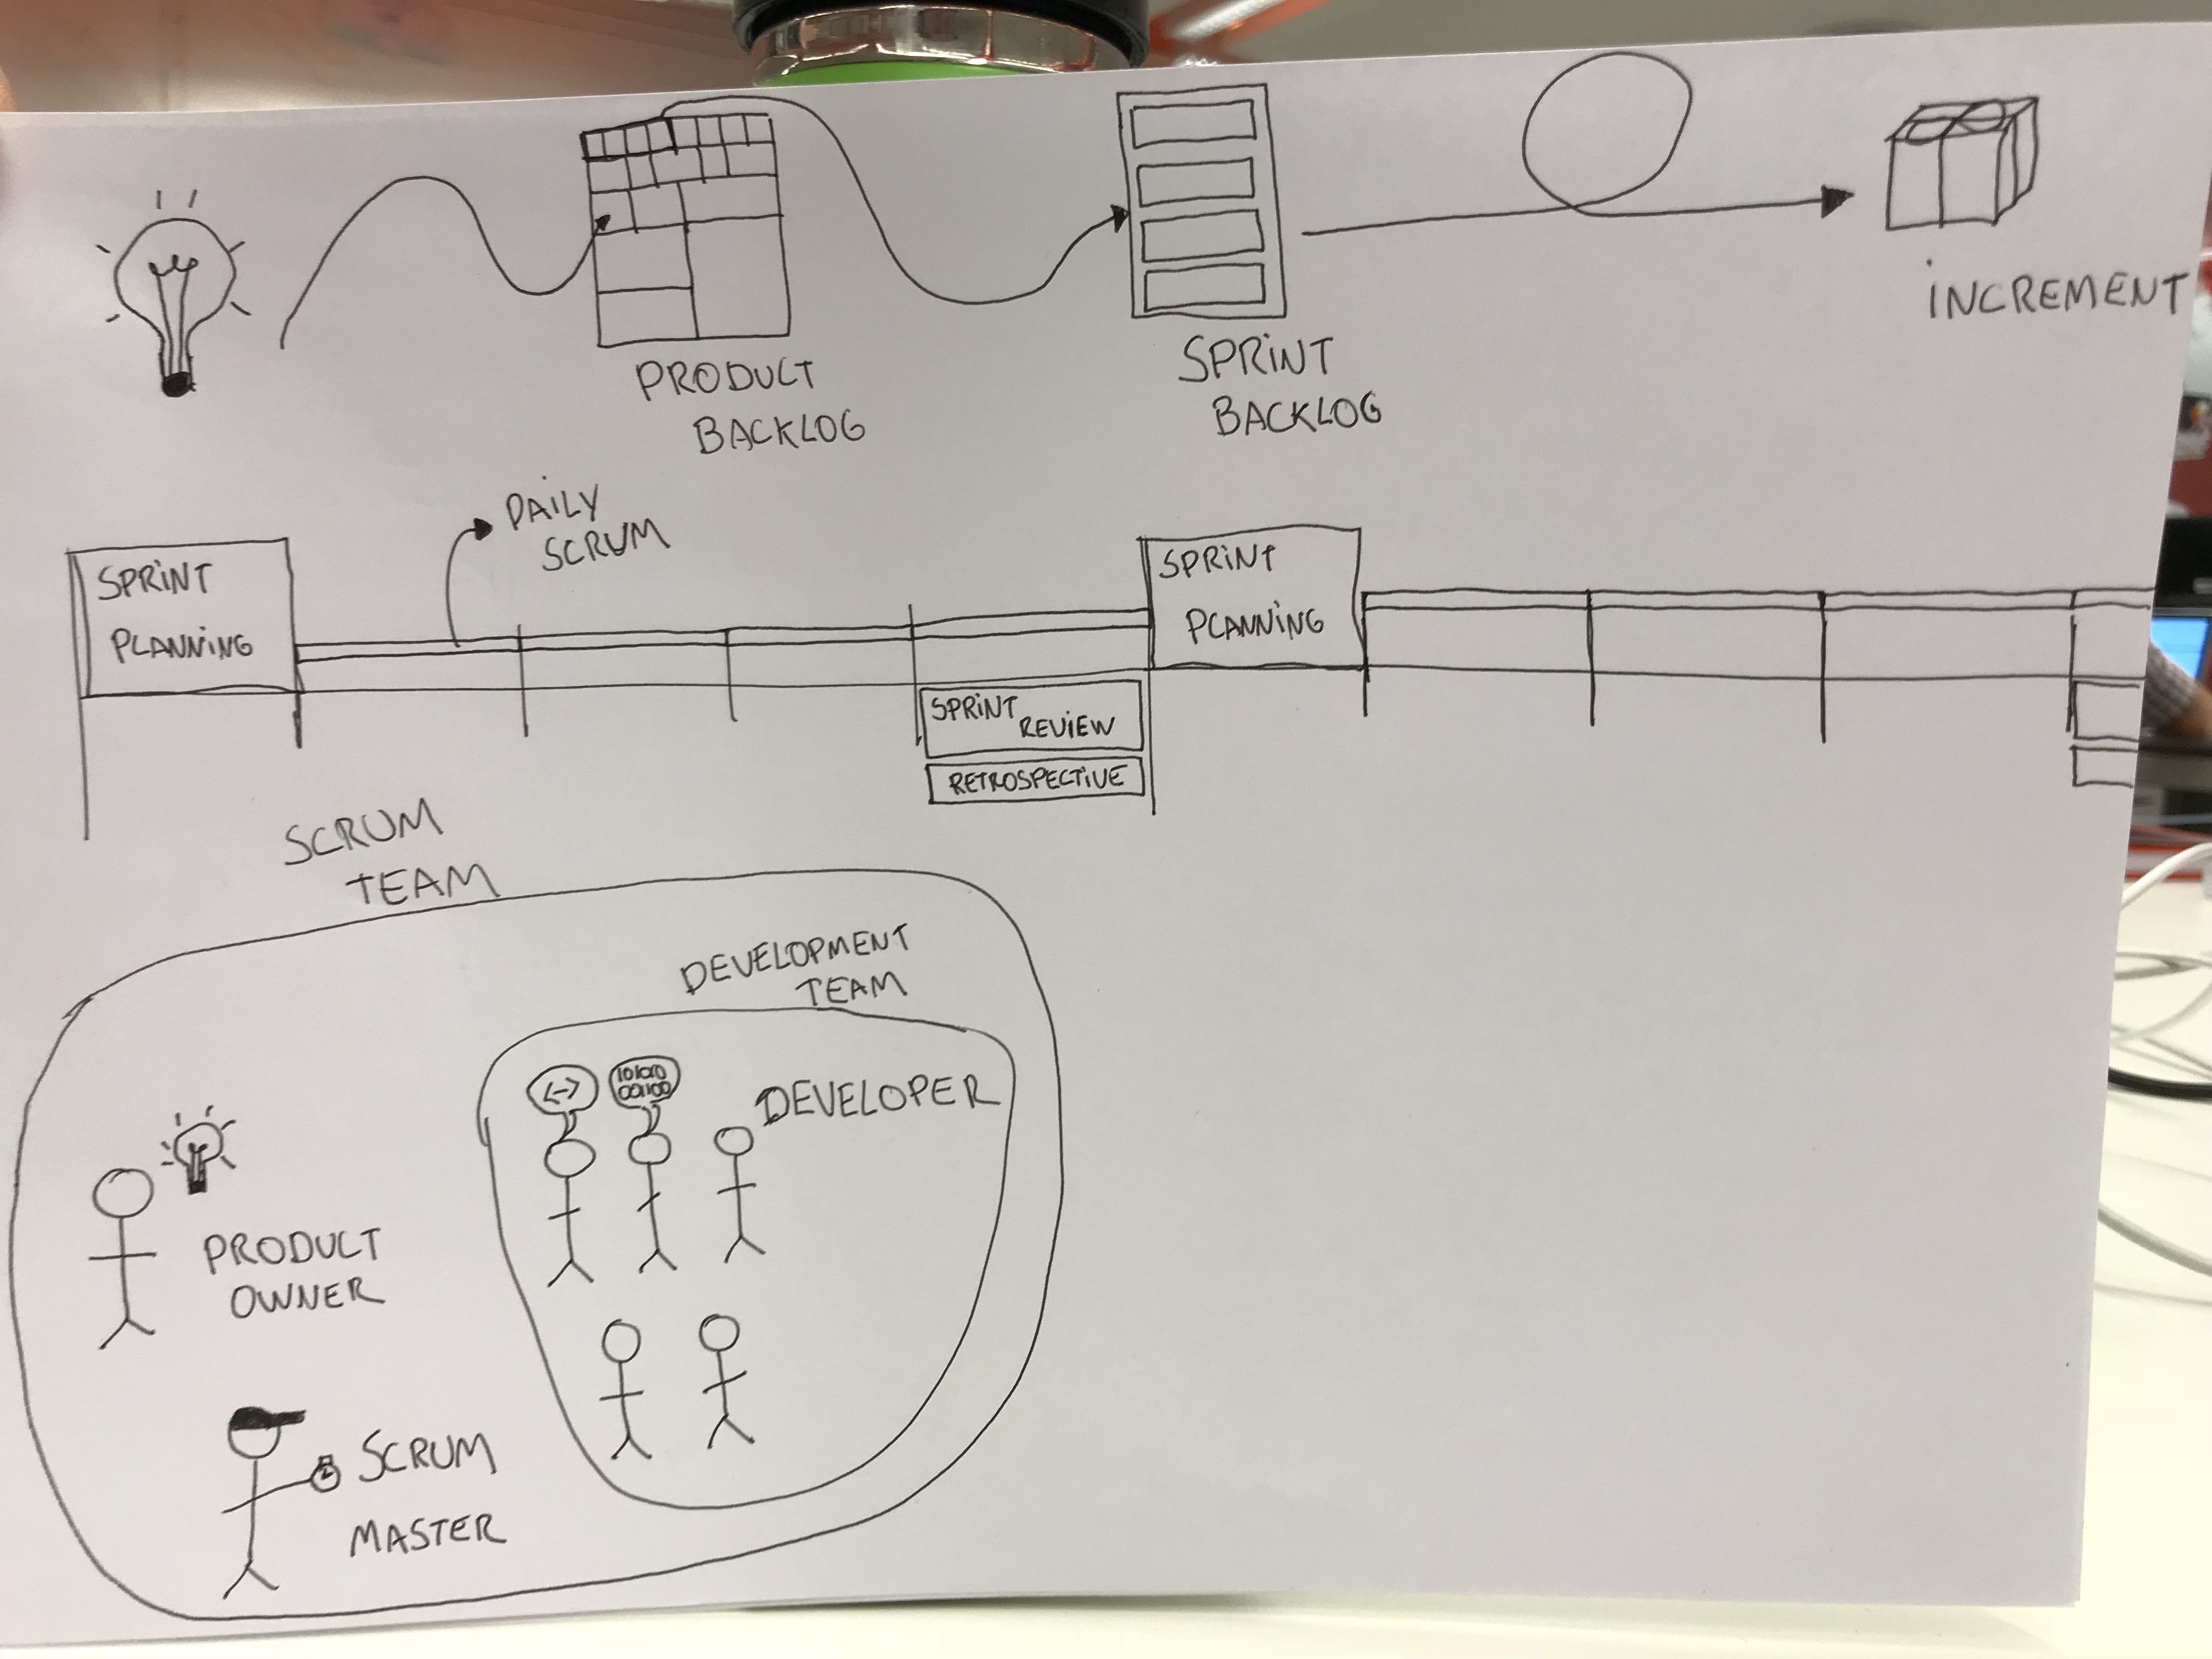 PRODUCT
BACKLOG
SPRINT
BACKLOG
INCREMENT
DAILY
SCRUM
SPRINT
PLANNING
SPRINT
PLANNING
SPRINT
REVIEW
RETROSPECTIVE
SCRUM
TEAM
DEVELOPMENT
TEAM
<->
101010
001100
DEVELOPER
PRODUCT
OWNER
SCRUM
MASTER